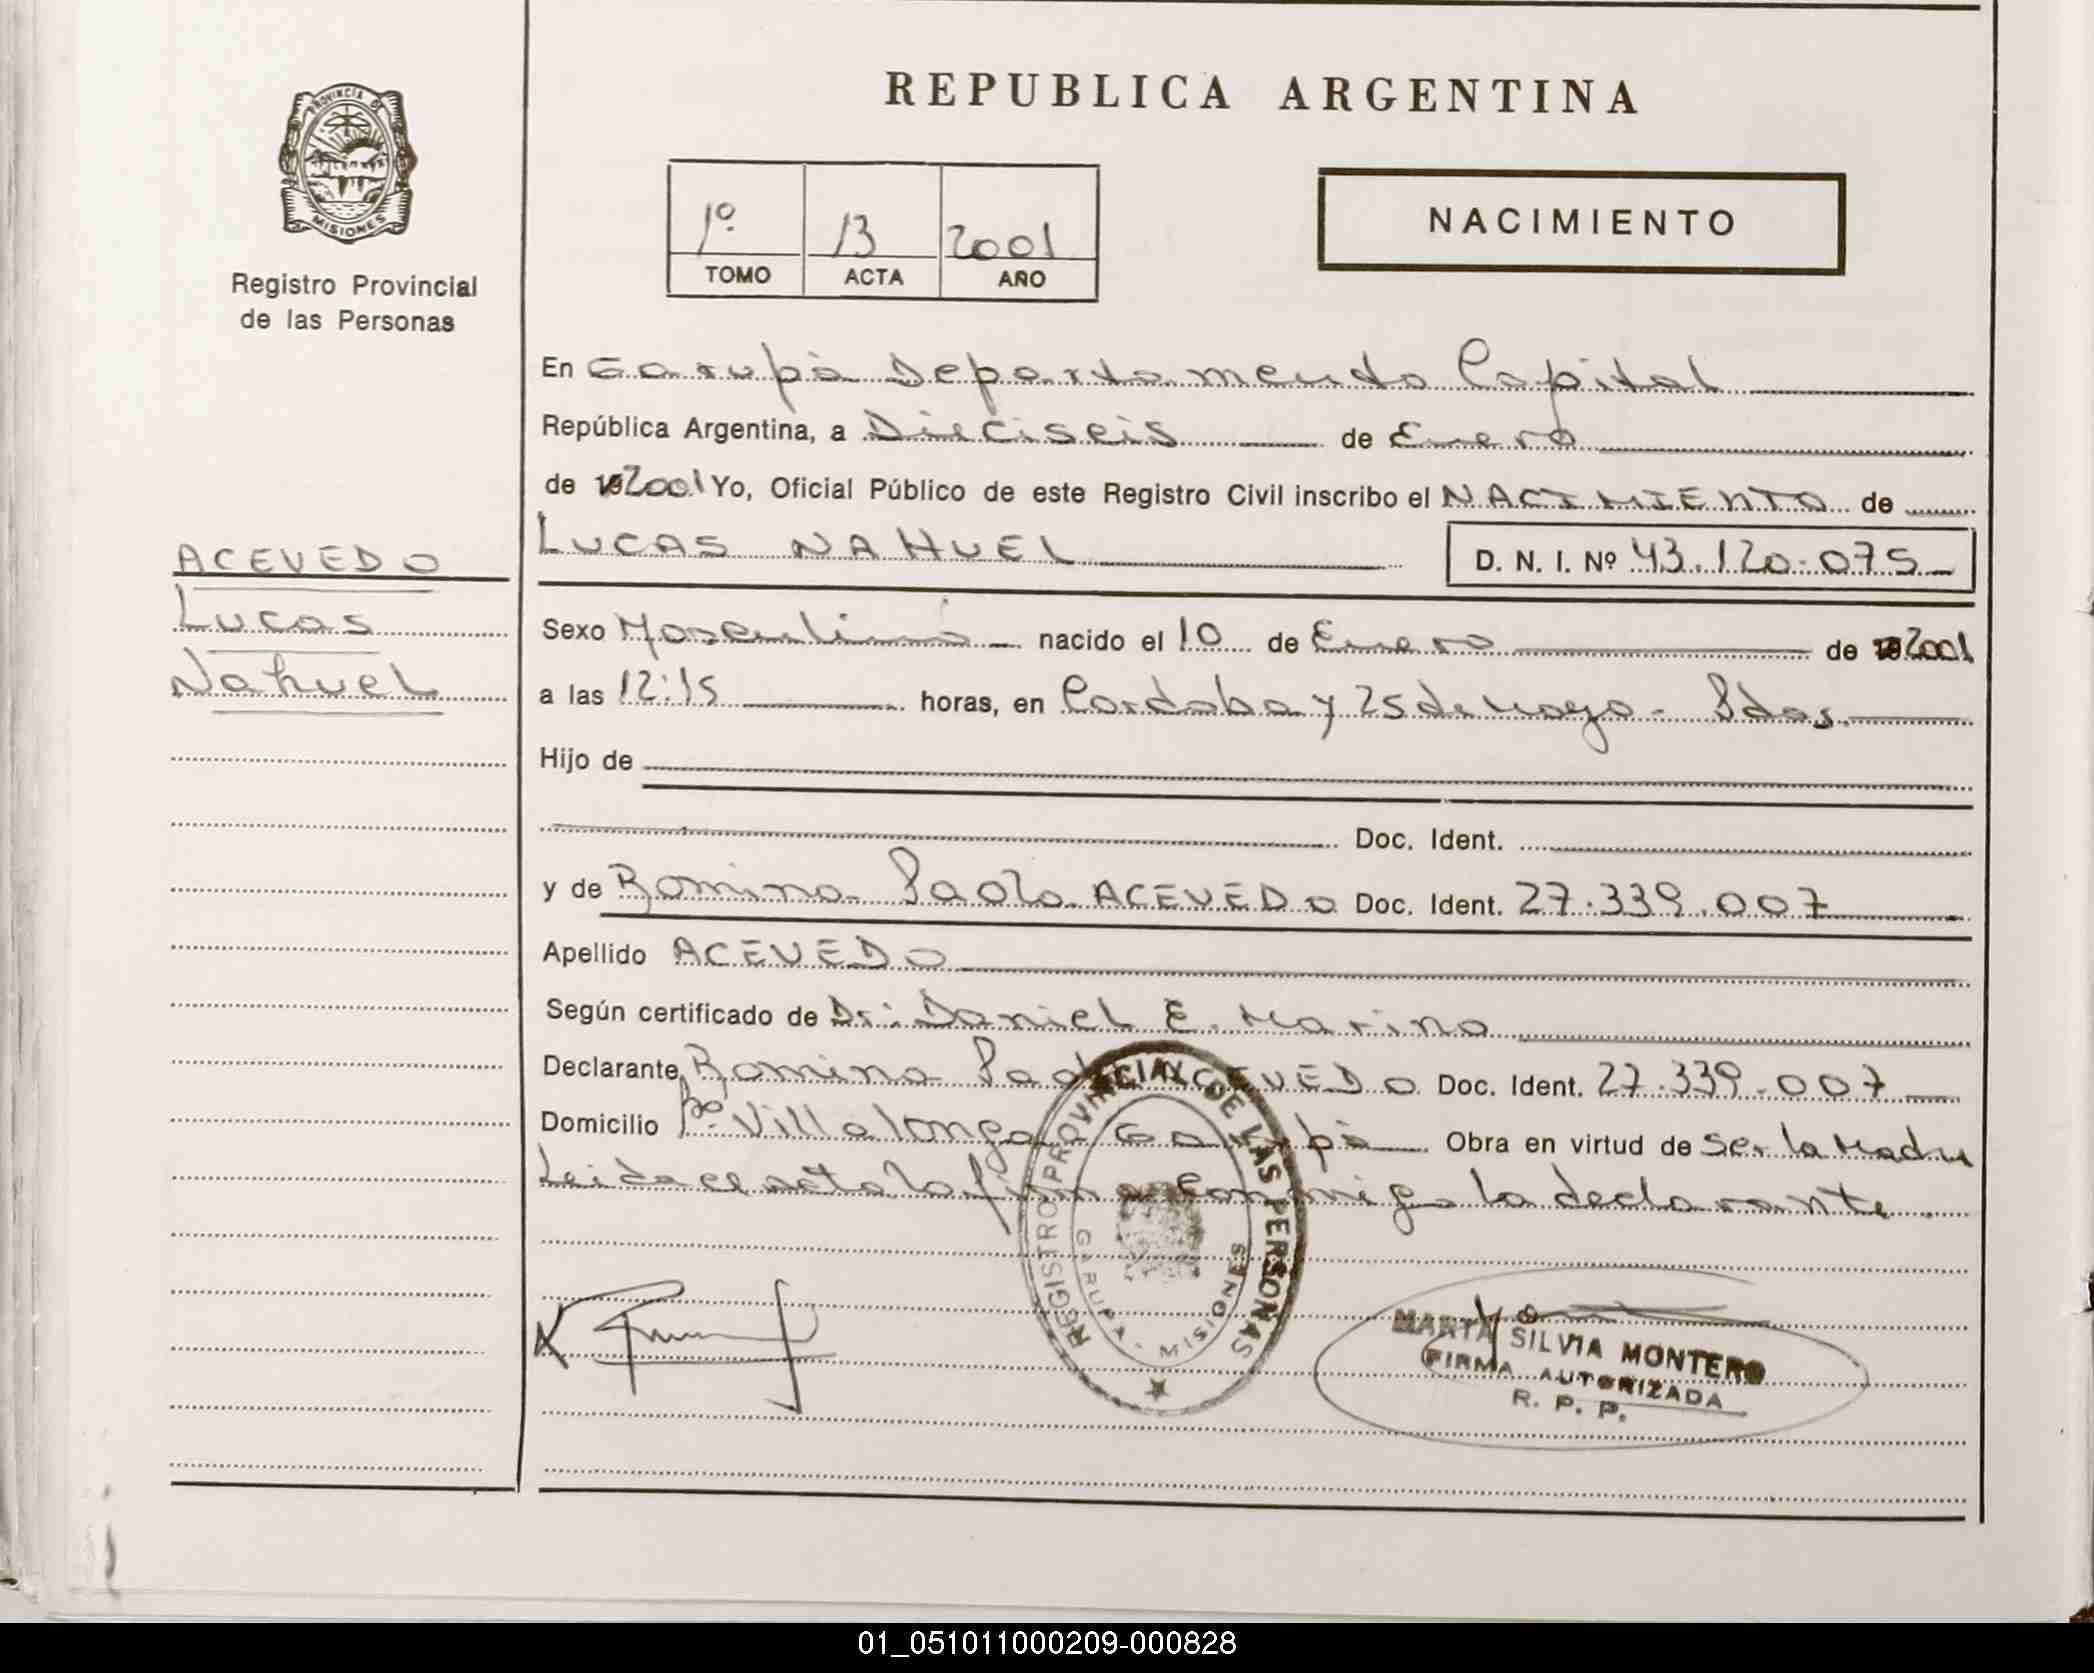 PROVINCIA DE
MISIONES
Registro Provincial
de las Personas
ACEVEDO
Lucas
Nahuel
REPUBLICA ARGENTINA
1º 13 2001
TOMO ACTA AÑO
NACIMIENTO
En Garupà Departamento Capital
República Argentina, a Dieciseis de Enero
de 2001 Yo, Oficial Público de este Registro Civil inscribo el NACIMIENTO de
LUCAS NAHUEL D. N. I. Nº 43.120.075
Sexo Masculino nacido el 10 de Enero de 2001
a las 12:15 horas, en Cordoba y 25 de Mayo - Pdas.
Hijo de
Doc. Ident.
y de Romina Paola ACEVEDO Doc. Ident. 27.339.007
Apellido ACEVEDO
Según certificado de Dr: Daniel E. Marino
Declarante Romina Paola ACEVEDO Doc. Ident. 27.339.007
Domicilio Bº Villalonga Garupà Obra en virtud de Ser la Madre
Leida el acta la firma conmigo la declarante.
REGISTRO PROVINCIAL DE LAS PERSONAS
GARUPA - MISIONES
MARTA SILVIA MONTERO
FIRMA AUTORIZADA
R. P. P.
01_051011000209-000828